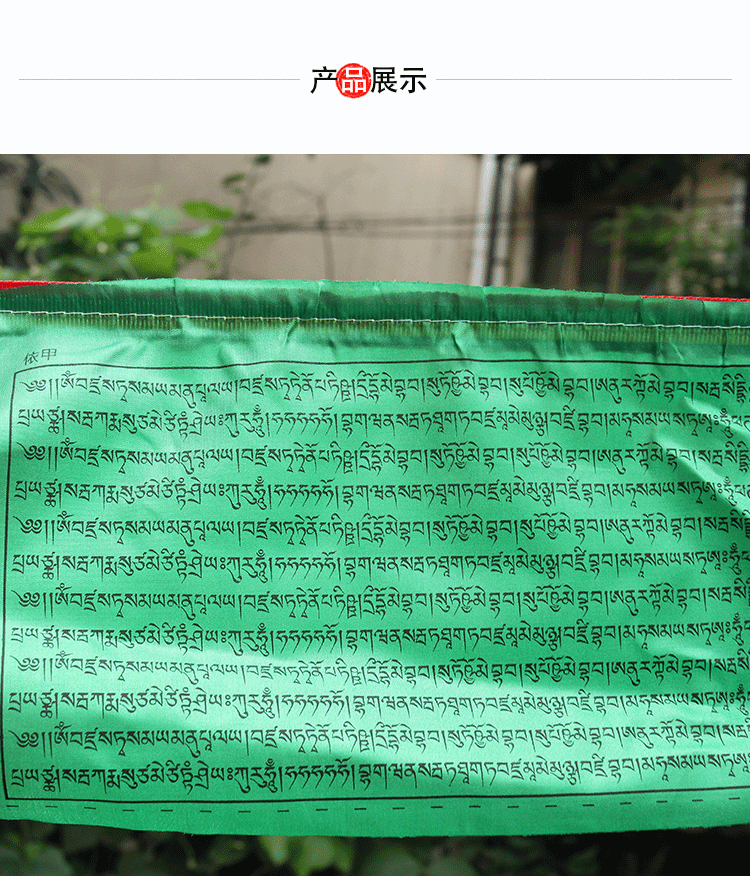 产品展示
依甲
༄༅།།ཨོཾབཛྲསཏྭསམཡམནུཔཱལཡ།བཛྲསཏྭཏྭེནོཔཏིཥྛ།དྲིཌྷོམེབྷབ།སུཏོཥྱོམེབྷབ།སུཔོཥྱོམེབྷབ།ཨནུརཀྟོམེབྷབ།སརྦསིདྡྷི
པྲཡཙྪ།སརྦཀརྨསུཙམེཙིཏྟཾཤྲེཡཿཀུརུཧཱུྃ།ཧཧཧཧཧོ།བྷགཝནསརྦཏཐཱགཏབཛྲམཱམེམུཉྩ།བཛྲིབྷབ།མཧཱསམཡསཏྭཨཱཿཧཱུྃ
༄༅།།ཨོཾབཛྲསཏྭསམཡམནུཔཱལཡ།བཛྲསཏྭཏྭེནོཔཏིཥྛ།དྲིཌྷོམེབྷབ།སུཏོཥྱོམེབྷབ།སུཔོཥྱོམེབྷབ།ཨནུརཀྟོམེབྷབ།སརྦསིདྡྷི
པྲཡཙྪ།སརྦཀརྨསུཙམེཙིཏྟཾཤྲེཡཿཀུརུཧཱུྃ།ཧཧཧཧཧོ།བྷགཝནསརྦཏཐཱགཏབཛྲམཱམེམུཉྩ།བཛྲིབྷབ།མཧཱསམཡསཏྭཨཱཿཧཱུྃ
༄༅།།ཨོཾབཛྲསཏྭསམཡམནུཔཱལཡ།བཛྲསཏྭཏྭེནོཔཏིཥྛ།དྲིཌྷོམེབྷབ།སུཏོཥྱོམེབྷབ།སུཔོཥྱོམེབྷབ།ཨནུརཀྟོམེབྷབ།སརྦསིདྡྷི
པྲཡཙྪ།སརྦཀརྨསུཙམེཙིཏྟཾཤྲེཡཿཀུརུཧཱུྃ།ཧཧཧཧཧོ།བྷགཝནསརྦཏཐཱགཏབཛྲམཱམེམུཉྩ།བཛྲིབྷབ།མཧཱསམཡསཏྭཨཱཿཧཱུྃ
༄༅།།ཨོཾབཛྲསཏྭསམཡམནུཔཱལཡ།བཛྲསཏྭཏྭེནོཔཏིཥྛ།དྲིཌྷོམེབྷབ།སུཏོཥྱོམེབྷབ།སུཔོཥྱོམེབྷབ།ཨནུརཀྟོམེབྷབ།སརྦསི
པྲཡཙྪ།སརྦཀརྨསུཙམེཙིཏྟཾཤྲེཡཿཀུརུཧཱུྃ།ཧཧཧཧཧོ།བྷགཝནསརྦཏཐཱགཏབཛྲམཱམེམུཉྩ།བཛྲིབྷབ།མཧཱསམཡསཏྭཨཱཿཧཱུྃ
༄༅།།ཨོཾབཛྲསཏྭསམཡམནུཔཱལཡ།བཛྲསཏྭཏྭེནོཔཏིཥྛ།དྲིཌྷོམེབྷབ།སུཏོཥྱོམེབྷབ།སུཔོཥྱོམེབྷབ།ཨནུརཀྟོམེབྷབ།སརྦསི
པྲཡཙྪ།སརྦཀརྨསུཙམེཙིཏྟཾཤྲེཡཿཀུརུཧཱུྃ།ཧཧཧཧཧོ།བྷགཝནསརྦཏཐཱགཏབཛྲམཱམེམུཉྩ།བཛྲིབྷབ།མཧཱསམཡསཏྭཨཱཿཧཱུྃ
༄༅།།ཨོཾབཛྲསཏྭསམཡམནུཔཱལཡ།བཛྲསཏྭཏྭེནོཔཏིཥྛ།དྲིཌྷོམེབྷབ།སུཏོཥྱོམེབྷབ།སུཔོཥྱོམེབྷབ།ཨནུརཀྟོམེབྷབ།སརྦ
པྲཡཙྪ།སརྦཀརྨསུཙམེཙིཏྟཾཤྲེཡཿཀུརུཧཱུྃ།ཧཧཧཧཧོ།བྷགཝནསརྦཏཐཱགཏབཛྲམཱམེམུཉྩ།བཛྲིབྷབ།མཧཱསམཡསཏྭཨཱཿ